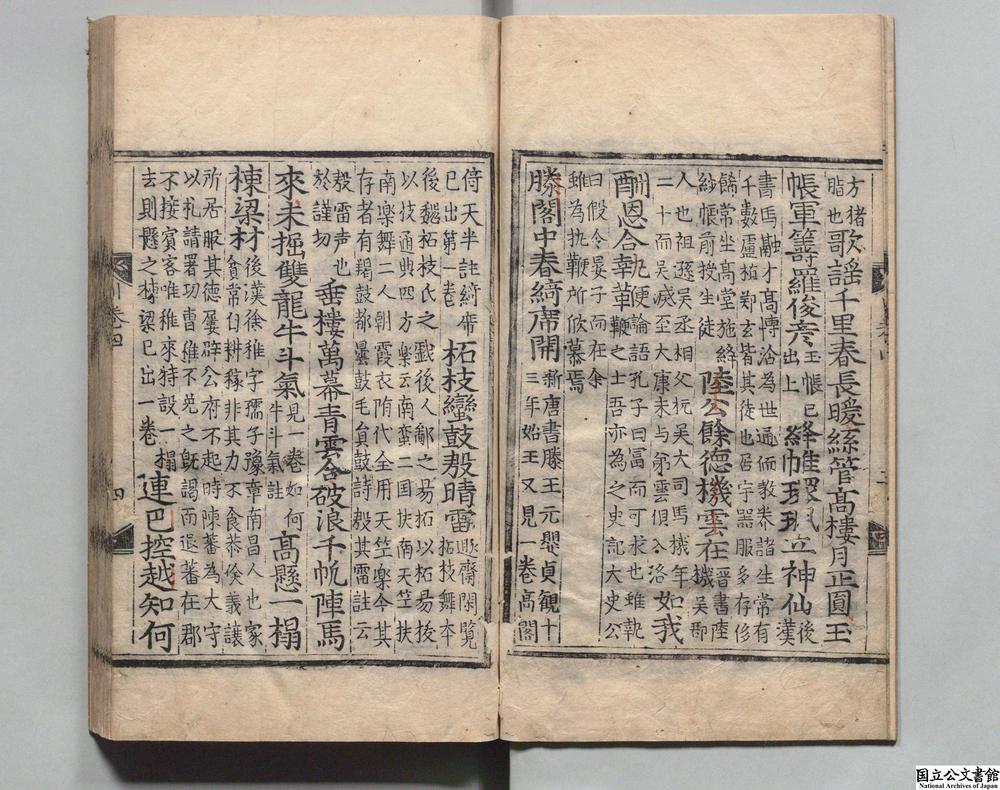 方猪
脂也
歌謡千里春長暖絲管高樓月正圓玉
帳軍籌羅俊彦
玉帳已
出上
絳帷環珮立神仙
後
漢
書馬融才高博洽為世通儒教养諸生常有
千數盧植鄭玄皆其徒也居宇器服多存侈
餙常坐高堂施絳
紗帳前授生徒
陸公餘德機雲在
晉書陸
機吳郡
人也祖遜吳丞相父抗吳大司馬機年
二十而吳滅至大康末与弟雲俱入洛
如我
酬恩合執鞭
論語孔子曰富而可求也雖執
鞭之士吾亦為之史記大史公
曰假令晏子而在余
雖為执鞭所忻慕焉
滕閣中春綺席開
新唐書滕王元嬰貞観十
三年始王又見一卷高閣
侍天半註綺席
已出第一卷
柘枝蠻鼓殷晴雷
遯齋閑覽
柘枝舞本
後魏拓枝氏之戯後人鄙之易拓以柘易抜
以技通典四方楽云南蛮二国扶南天竺扶
南楽舞二人朝霞衣隋代全用天竺楽今其
存者有羯鼓都曇鼓毛貟鼓詩殷其雷註云
殷雷声也
於謹切
垂樓萬幕青雲合破浪千帆陣馬
來未掘雙龍牛斗氣
見一卷
牛斗氣註
如何高懸一榻
棟梁材
後漢徐稚字孺子豫章南昌人也家
貧常自耕稼非其力不食恭倹義讓
所居服其德屡辟公府不起時陳蕃為大守
以礼請署功曹稚不免之旣謁而退蕃在郡
不接賓客唯稚來特設一榻
去則懸之棟梁已出一卷
連巴控越知何
卷四
四
国立公文書館
National Archives of Japan